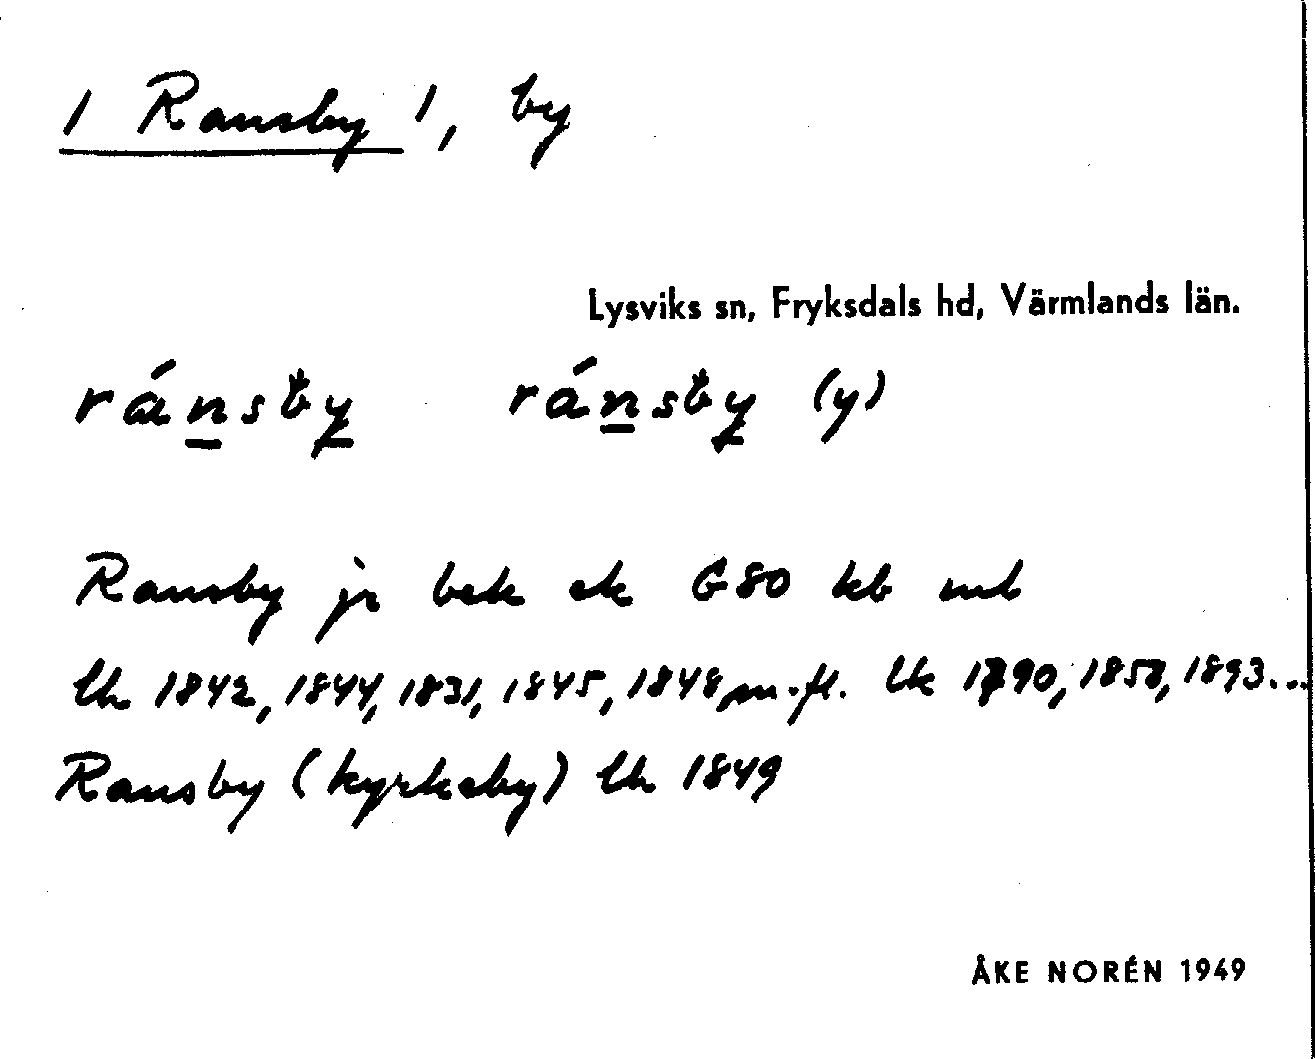 / Ransby /, by
Lysviks sn, Fryksdals hd, Värmlands län.
ránsby ránsby (y)
Ransby jr bek ek G80 kb ml
lh 1842, 1844, 1831, 1845, 1848, m.fl. lk 1790, 1858, 1893...
Ransby (kyrkeby) lh 1849
ÅKE NORÉN 1949